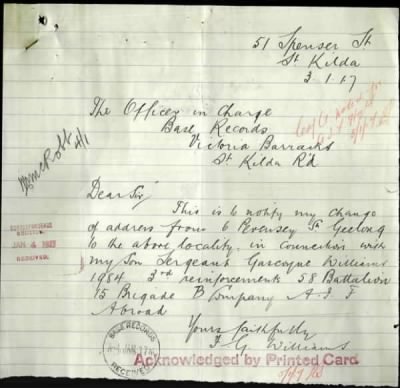 51 Spenser St
St Kilda
3.1.17
The Officer in Charge
Base Records
Victoria Barracks
St Kilda Rd
Dear Sir
This is to notify my change
of address from 6 Pevensey St Geelong
to the above locality, in connection with
my Son Sergeant Gascoyne Williams
1984 3rd reinforcements 58 Battalion
15 Brigade B Company A.I.F
Abroad
Yours faithfully
F G Williams
JAN 4 1917
RECEIVED
BASE RECORDS
RECEIVED
Acknowledged by Printed Card